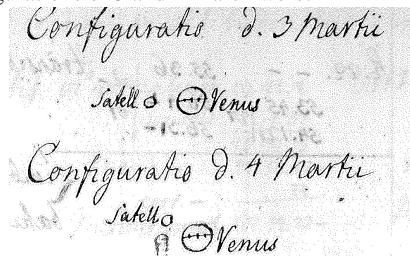 Configuratio d. 3 Martii
Satell Venus
Configuratio d. 4 Martii
Satell
Venus